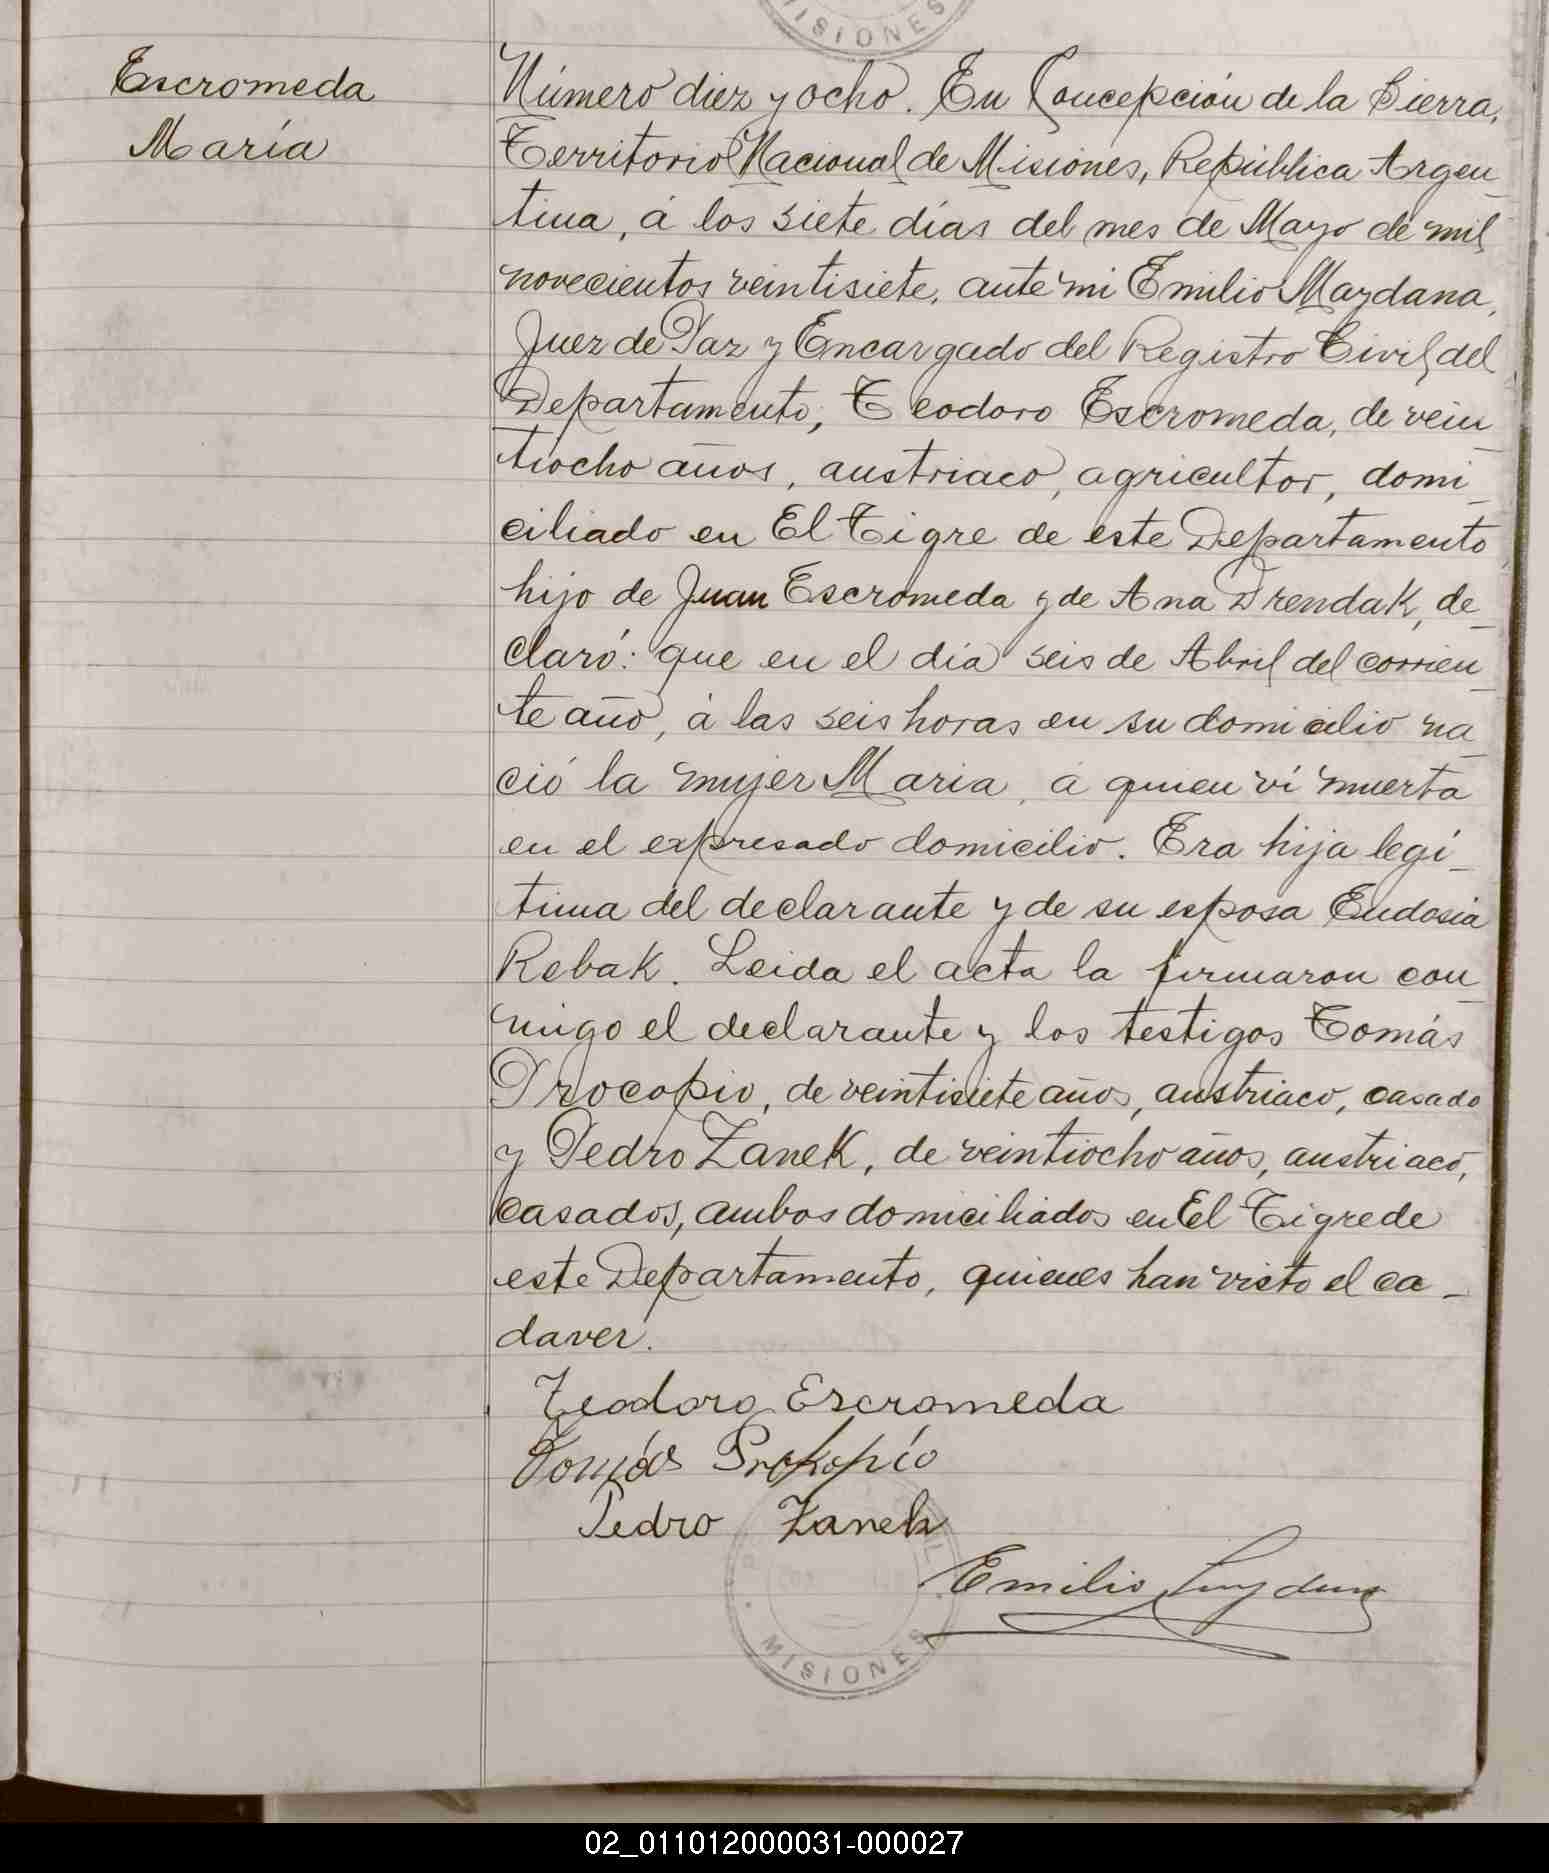 MISIONES
Escromeda
María
Número diez y ocho. En Concepción de la Sierra,
Territorio Nacional de Misiones, República Argen_
tina, á los siete días del mes de Mayo de mil
novecientos veintisiete, ante mi Emilio Maydana,
Juez de Paz y Encargado del Registro Civil del
Departamento, Teodoro Escromeda, de vein_
tiocho años, austriaco, agricultor, domi_
ciliado en El Tigre de este Departamento
hijo de Juan Escromeda y de Ana Drendak, de_
claró: que en el día seis de Abril del corrien_
te año, á las seis horas en su domicilio na_
ció la mujer Maria, á quien ví muerta
en el expresado domicilio. Era hija legí_
tima del declarante y de su esposa Eudosia
Rebak. Leida el acta la firmaron con_
migo el declarante y los testigos Tomás
Procopio, de veintisiete años, austriaco, casado
y Pedro Zanek, de veintiocho años, austriaco,
casados, ambos domiciliados en El Tigre de
este Departamento, quienes han visto el ca_
daver.
Teodoro Escromeda
Tomás Prokopío
Pedro Zanek
Emilio Maydana
MISIONES
02_011012000031-000027